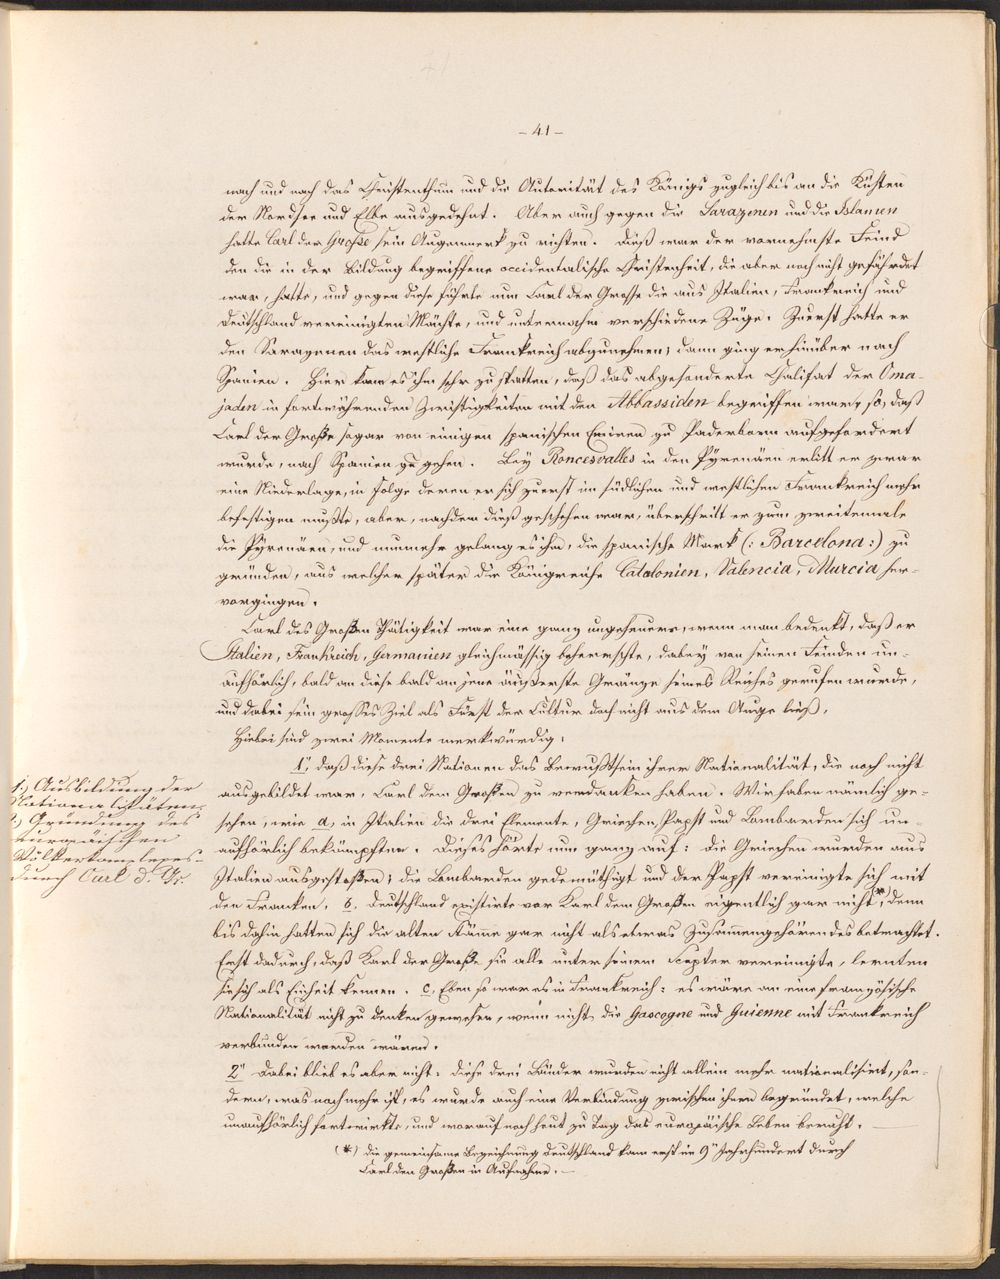 - 41 -
nach und nach das Christenthum und die Autorität des Königs zugleich bis an die Küsten
der Nordsee und Elbe ausgedehnt. Aber auch gegen die Sarazenen und die Islamen
hatte Carl der Große sein Augenmerk zu richten. Dieß war der vornehmste Feind
den die in der Bildung begriffene occidentalische Christenheit, die aber noch nicht gefährdet
war, hatte, und gegen diese führte nun Carl der Grosse die aus Italien, Frankreich und
Deutschland vereinigten Mächte, und unternahm verschiedene Züge. Zuerst hatte er
den Sarazenen das westliche Frankreich abzunehmen; dann ging er hinüber nach
Spanien. Hier kam es ihm sehr zu statten, daß das abgesonderte Chalifat der Oma-
jaden in fortwährenden Zwistigkeiten mit den Abbassiden begriffen war, so, daß
Carl der Große sogar von einigen spanischen Emiren zu Paderborn aufgefordert
wurde, nach Spanien zu gehen. Bey Roncesvalles in den Pyrenäen erlitt er zwar
eine Niederlage, in Folge deren er sich zuerst im südlichen und westlichen Frankreich mehr
befestigen mußte, aber, nachdem dieß geschehen war, überschritt er zum zweitenmale
die Pyrenäen, und nunmehr gelang es ihm, die spanische Mark (: Barcelona :) zu
gründen, aus welcher später die Königreiche Catalonien, Valencia, Murcia her-
vorgingen.
Carl des Großen Thätigkeit war eine ganz ungeheuere, wenn man bedenkt, daß er
Italien, Frankreich, Germanien gleichmässig beherrschte, dabey von seinen Feinden un-
aufhörlich, bald an diese bald an jene äußerste Gränze seines Reiches gerufen wurde,
und dabei sein grosses Ziel als Fürst der Cultur doch nicht aus dem Auge ließ.
Hiebei sind zwei Momente merkwürdig:
1", daß diese drei Nationen das Bewußtsein ihrer Nationalität, die noch nicht
ausgebildet war, Carl dem Großen zu verdanken haben. Wir haben nämlich ge-
sehen, wie a, in Italien die drei Elemente, Griechen, Papst und Lombarden sich un-
aufhörlich bekämpften. Dieses hörte nun ganz auf: die Griechen wurden aus
Italien ausgestoßen; die Lombarden gedemüthigt und der Papst vereinigte sich mit
den Franken. b, Deutschland existirte vor Karl dem Großen eigentlich gar nicht *), denn
bis dahin hatten sich die alten Stämme gar nicht als etwas Zusammengehörendes betrachtet.
Erst dadurch, daß Karl der Große sie alle unter seinem Scepter vereinigte, lernten
sie sich als Einheit kennen. c, Eben so war es in Frankreich: es wäre an eine französische
Nationalität nicht zu denken gewesen, wenn nicht die Gascogne und Guienne mit Frankreich
verbunden worden wären.
2" Dabei blieb es aber nicht: diese drei Länder wurden nicht allein mehr nationalisirt, son-
dern, was noch mehr ist, es wurde auch eine Verbindung zwischen ihnen begründet, welche
unaufhörlich fortwirkte, und worauf noch heut zu Tag das europäische Leben beruht. —
(*) die gemeinsame Bezeichnung Deutschland kam erst im 9" Jahrhundert durch
Carl den Großen in Aufnahme. —
1.) Ausbildung der
Nationalitäten.
2.) Gründung des
europäischen
Völkerkomplexes
durch Carl d. Gr.